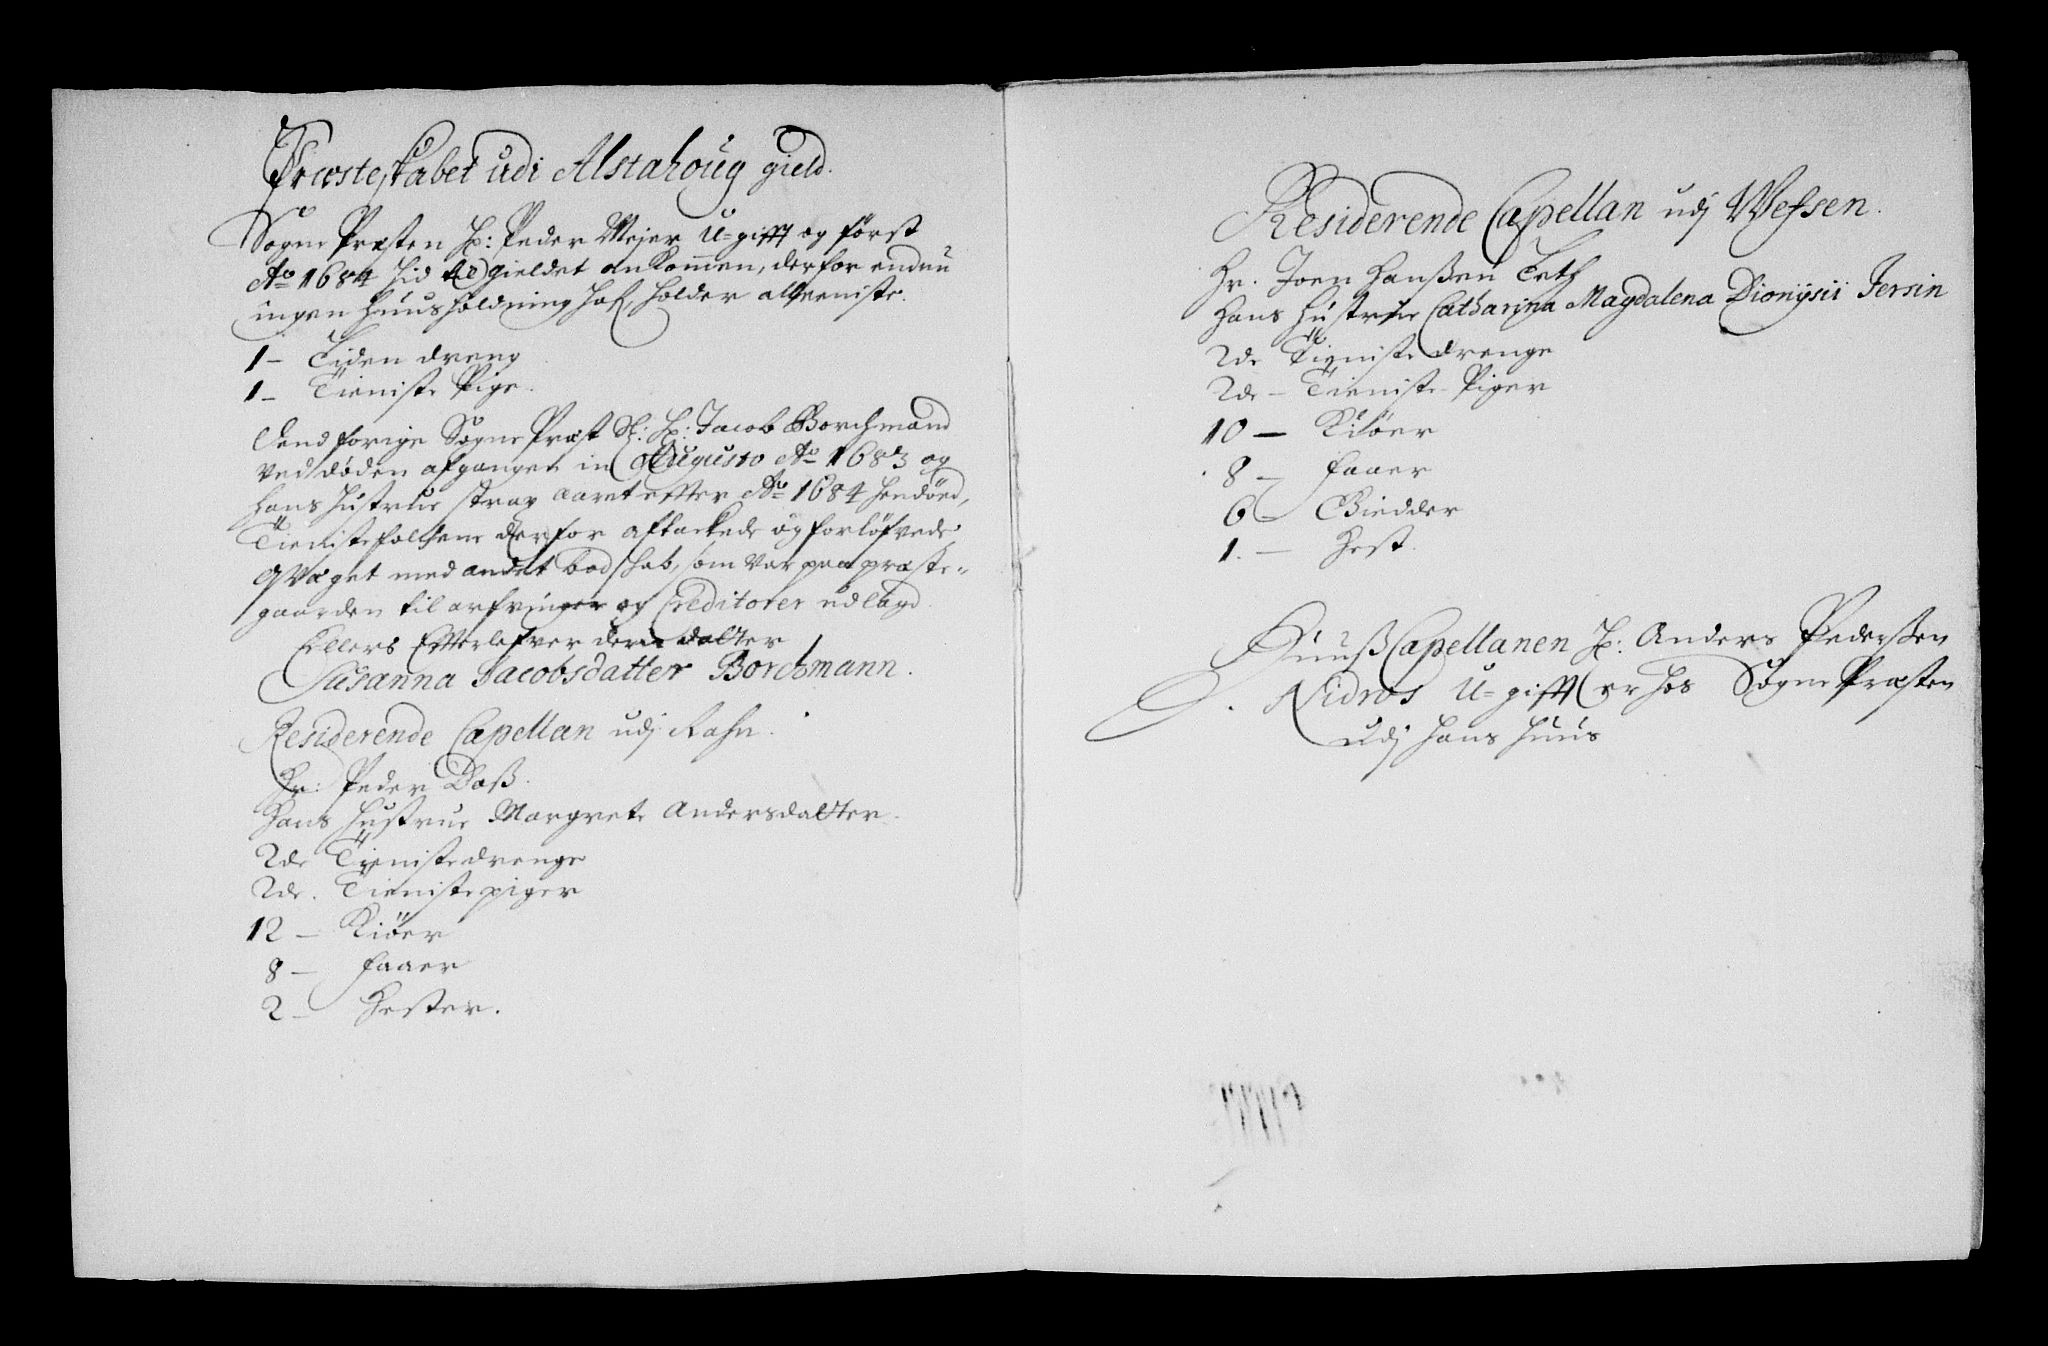 Præsteskabet udi Alstahoug gield.
Sogne Præsten H: Peder Mejer U-gifft og først
Ao 1684 hid til gieldet ankommen, derfor endnu
ingen huusholdning haf holder alleeniste.
1 - Liden dreng
1 - Tieniste Pige.
Dend forige Sogne Præst Sl: H: Jacob Borchmand
ved døden afgangen in Augusto Ao 1683 og
hans hustrue strax aaret efter Ao 1684 hendøed,
Tienistefolchene derfor aftackede og forløfvede
Qvæget med andet bodschab, som var paa præste-
gaarden til arfvinger og Creditorer udlagd.
Ellers Efterlefver deris datter
Susanna Jacobsdatter Borchmann.
Residerende Capellan udj Rahn.
Hr: Peder Daß.
Hans Hustrue Margrete Andersdatter.
2de Tienistedrenge
2de. Tienistepiger
12 - Kiöer
8 - faaer
2 - Hester.
Residerende Capellan udj Wefsen.
Hr. Joen Hanßen Teth
Hans Hustrue Catharina Magdalena Dionÿsii Jersin
2de Tieniste drenge
2de - Tieniste Piger
10 - Kiöer
8 - faaer
6 - Giedder
1. - Hest.
Huuß Capellanen H: Anders Pederßen
Nidros U-gifft er hos Sogne Præsten
udj hans huus